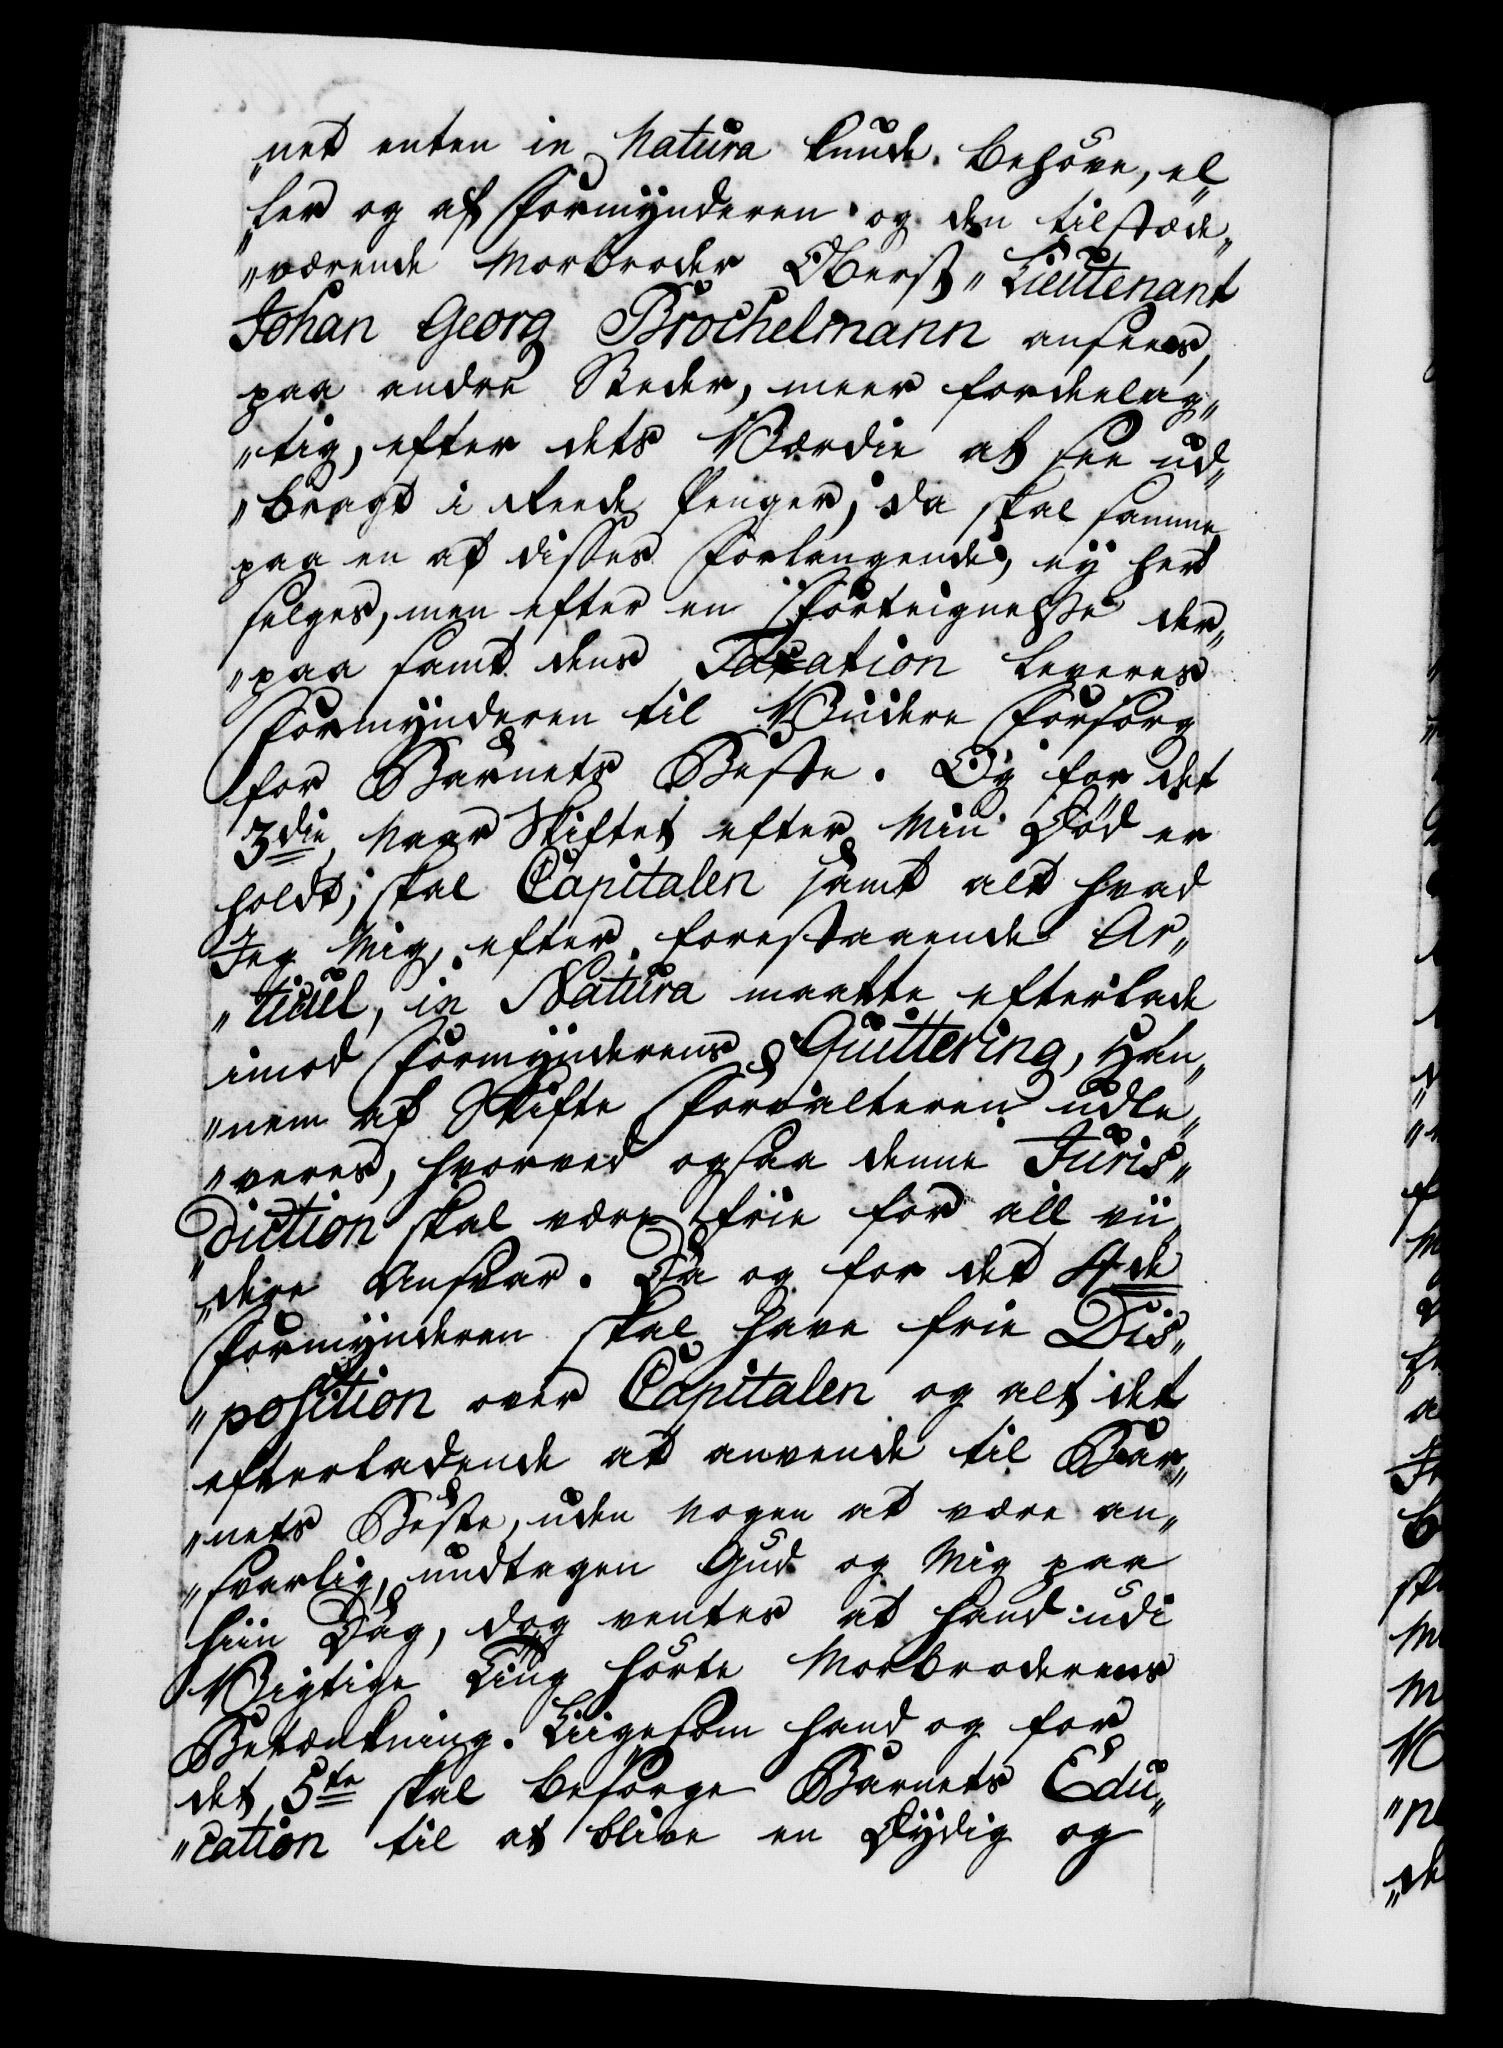 „net enten in Natura kunde behöve, el„
„ler og af Formÿnderen og den tilstæde„
„værende Morbroder Oberst„Lieutenant
Johan Georg Brochelmann ansees,
paa andre Steder, meer fordeelag„
„tig, efter dets Værdie at see ud„
„bragt i reede Penger; da skal samme
paa en af disses Forlangende, eÿ her
selges, men efter en Forteignelse der„
„paa samt dens Taxation leveres
Formÿnderen til Viidere Forsorg
for Barnets Beste. Og for det
3die, Naar Skiftet efter Min Död er
holdt; skal Capitalen samt alt hvad
Jeg Mig, efter forestaaende Ar„
„ticul, in Natura maatte efterlade
imod Formÿnderens Quittering, Han„
„nem af Skifte Forvalteren udle„
„veres, hvorved ogsaa denne Juris„
„diction skal være frie for all vii„
„dere Ansvar. Da og for det 4de
Formÿnderen skal have frie Dis„
„position over Capitalen og alt det
efterladende at anvende til Bar„
„nets Beste, uden Nogen at være an„
„svarlig, undtagen Gud og Mig paa
hiin Dag, dog ventes at hand udi
Vigtige Ting hörte Morbroderens
Betænkning. Liigesom hand og for
det 5te skal besörge Barnets Edu„
„cation til at blive en Dÿdig og